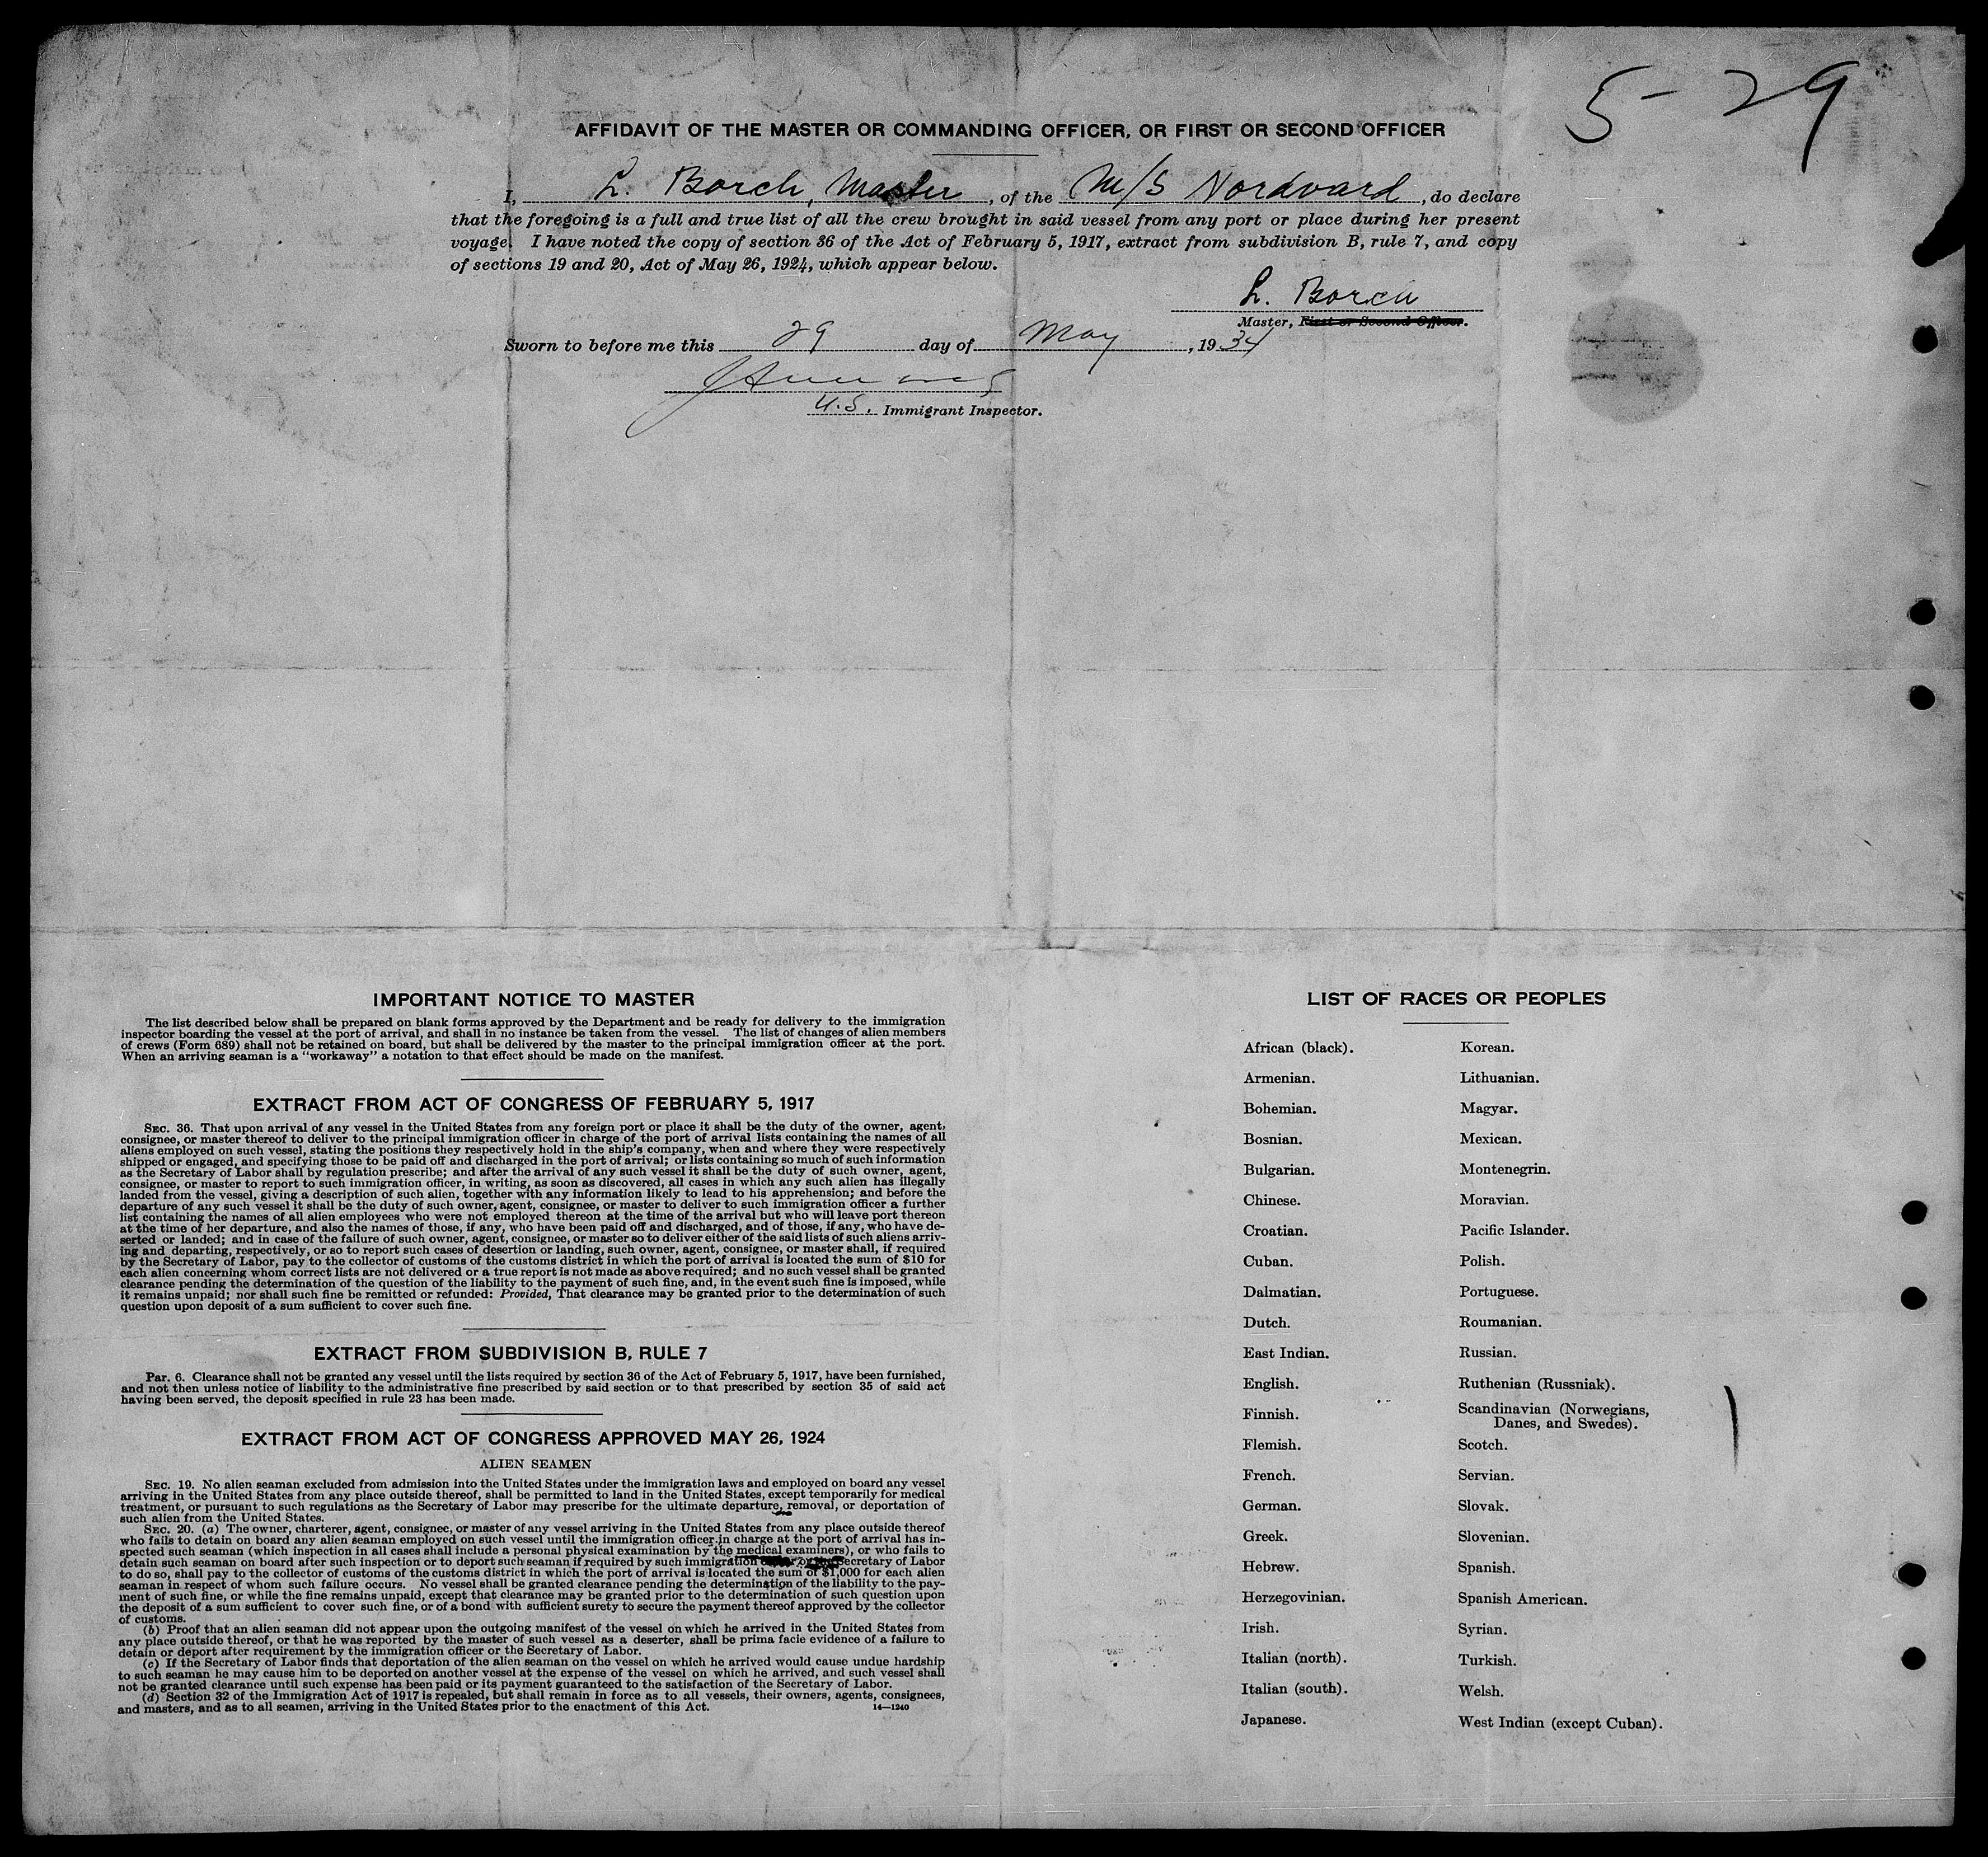 5-29
AFFIDAVIT OF THE MASTER OR COMMANDING OFFICER, OR FIRST OR SECOND OFFICER
I, L. Borch, Master, of the M/S Nordvard, do declare
that the foregoing is a full and true list of all the crew brought in said vessel from any port or place during her present
voyage. I have noted the copy of section 36 of the Act of February 5, 1917, extract from subdivision B, rule 7, and copy
of sections 19 and 20, Act of May 26, 1924, which appear below.
L. Borch
Master, First or Second Officer.
Sworn to before me this 29 day of May, 1934
U.S. Immigrant Inspector.
IMPORTANT NOTICE TO MASTER
The list described below shall be prepared on blank forms approved by the Department and be ready for delivery to the immigration
inspector boarding the vessel at the port of arrival, and shall in no instance be taken from the vessel. The list of changes of alien members
of crews (Form 689) shall not be retained on board, but shall be delivered by the master to the principal immigration officer at the port.
When an arriving seaman is a "workaway" a notation to that effect should be made on the manifest.
EXTRACT FROM ACT OF CONGRESS OF FEBRUARY 5, 1917
SEC. 36. That upon arrival of any vessel in the United States from any foreign port or place it shall be the duty of the owner, agent,
consignee, or master thereof to deliver to the principal immigration officer in charge of the port of arrival lists containing the names of all
aliens employed on such vessel, stating the positions they respectively hold in the ship's company, when and where they were respectively
shipped or engaged, and specifying those to be paid off and discharged in the port of arrival; or lists containing so much of such information
as the Secretary of Labor shall by regulation prescribe; and after the arrival of any such vessel it shall be the duty of such owner, agent,
consignee, or master to report to such immigration officer, in writing, as soon as discovered, all cases in which any such alien has illegally
landed from the vessel, giving a description of such alien, together with any information likely to lead to his apprehension; and before the
departure of any such vessel it shall be the duty of such owner, agent, consignee, or master to deliver to such immigration officer a further
list containing the names of all alien employees who were not employed thereon at the time of the arrival but who will leave port thereon
at the time of her departure, and also the names of those, if any, who have been paid off and discharged, and of those, if any, who have de-
serted or landed; and in case of the failure of such owner, agent, consignee, or master so to deliver either of the said lists of such aliens arriv-
ing and departing, respectively, or so to report such cases of desertion or landing, such owner, agent, consignee, or master shall, if required
by the Secretary of Labor, pay to the collector of customs of the customs district in which the port of arrival is located the sum of $10 for
each alien concerning whom correct lists are not delivered or a true report is not made as above required; and no such vessel shall be granted
clearance pending the determination of the question of the liability to the payment of such fine, and, in the event such fine is imposed, while
it remains unpaid; nor shall such fine be remitted or refunded: Provided, That clearance may be granted prior to the determination of such
question upon deposit of a sum sufficient to cover such fine.
EXTRACT FROM SUBDIVISION B, RULE 7
Par. 6. Clearance shall not be granted any vessel until the lists required by section 36 of the Act of February 5, 1917, have been furnished,
and not then unless notice of liability to the administrative fine prescribed by said section or to that prescribed by section 35 of said act
having been served, the deposit specified in rule 23 has been made.
EXTRACT FROM ACT OF CONGRESS APPROVED MAY 26, 1924
ALIEN SEAMEN
SEC. 19. No alien seaman excluded from admission into the United States under the immigration laws and employed on board any vessel
arriving in the United States from any place outside thereof, shall be permitted to land in the United States, except temporarily for medical
treatment, or pursuant to such regulations as the Secretary of Labor may prescribe for the ultimate departure, removal, or deportation of
such alien from the United States.
SEC. 20. (a) The owner, charterer, agent, consignee, or master of any vessel arriving in the United States from any place outside thereof
who fails to detain on board any alien seaman employed on such vessel until the immigration officer in charge at the port of arrival has in-
spected such seaman (which inspection in all cases shall include a personal physical examination by the medical examiners), or who fails to
detain such seaman on board after such inspection or to deport such seaman if required by such immigration or the Secretary of Labor
to do so, shall pay to the collector of customs of the customs district in which the port of arrival is located the sum of $1,000 for each alien
seaman in respect of whom such failure occurs. No vessel shall be granted clearance pending the determination of the liability to the pay-
ment of such fine, or while the fine remains unpaid, except that clearance may be granted prior to the determination of such question upon
the deposit of a sum sufficient to cover such fine, or of a bond with sufficient surety to secure the payment thereof approved by the collector
of customs.
(b) Proof that an alien seaman did not appear upon the outgoing manifest of the vessel on which he arrived in the United States from
any place outside thereof, or that he was reported by the master of such vessel as a deserter, shall be prima facie evidence of a failure to
detain or deport after requirement by the immigration officer or the Secretary of Labor.
(c) If the Secretary of Labor finds that deportation of the alien seaman on the vessel on which he arrived would cause undue hardship
to such seaman he may cause him to be deported on another vessel at the expense of the vessel on which he arrived, and such vessel shall
not be granted clearance until such expense has been paid or its payment guaranteed to the satisfaction of the Secretary of Labor.
(d) Section 32 of the Immigration Act of 1917 is repealed, but shall remain in force as to all vessels, their owners, agents, consignees,
and masters, and as to all seamen, arriving in the United States prior to the enactment of this Act. 14—1240
LIST OF RACES OR PEOPLES
African (black).
Armenian.
Bohemian.
Bosnian.
Bulgarian.
Chinese.
Croatian.
Cuban.
Dalmatian.
Dutch.
East Indian.
English.
Finnish.
Flemish.
French.
German.
Greek.
Hebrew.
Herzegovinian.
Irish.
Italian (north).
Italian (south).
Japanese.
Korean.
Lithuanian.
Magyar.
Mexican.
Montenegrin.
Moravian.
Pacific Islander.
Polish.
Portuguese.
Roumanian.
Russian.
Ruthenian (Russniak).
Scandinavian (Norwegians,
Danes, and Swedes).
Scotch.
Servian.
Slovak.
Slovenian.
Spanish.
Spanish American.
Syrian.
Turkish.
Welsh.
West Indian (except Cuban).